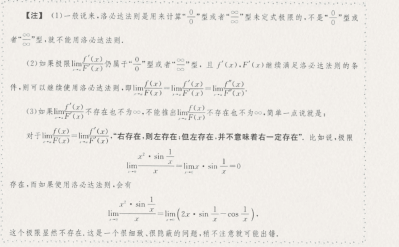 【注】 (1)一般说来,洛必达法则是用来计算"0/0"型或者"∞/∞"型未定式极限的,不是"0/0"型或
者"∞/∞"型,就不能用洛必达法则.
(2)如果极限lim f'(x)/F'(x) 仍属于"0/0"型或者"∞/∞"型, 且 f'(x),F'(x)继续满足洛必达法则的条
件,则可以继续使用洛必达法则,即lim f(x)/F(x) = lim f'(x)/F'(x) = lim f''(x)/F''(x).
(3)如果lim f'(x)/F'(x) 不存在也不为∞,不能推出lim f(x)/F(x) 不存在也不为∞,简单一点说就是:
对于lim f(x)/F(x) = lim f'(x)/F'(x),"右存在,则左存在;但左存在,并不意味着右一定存在". 比如说,极限
lim x²·sin 1/x / x = lim x·sin 1/x = 0
存在,而如果使用洛必达法则,会有
lim x²·sin 1/x / x = lim(2x·sin 1/x − cos 1/x),
这个极限显然不存在.这是一个很细致、很隐蔽的问题,稍不注意就可能出错.